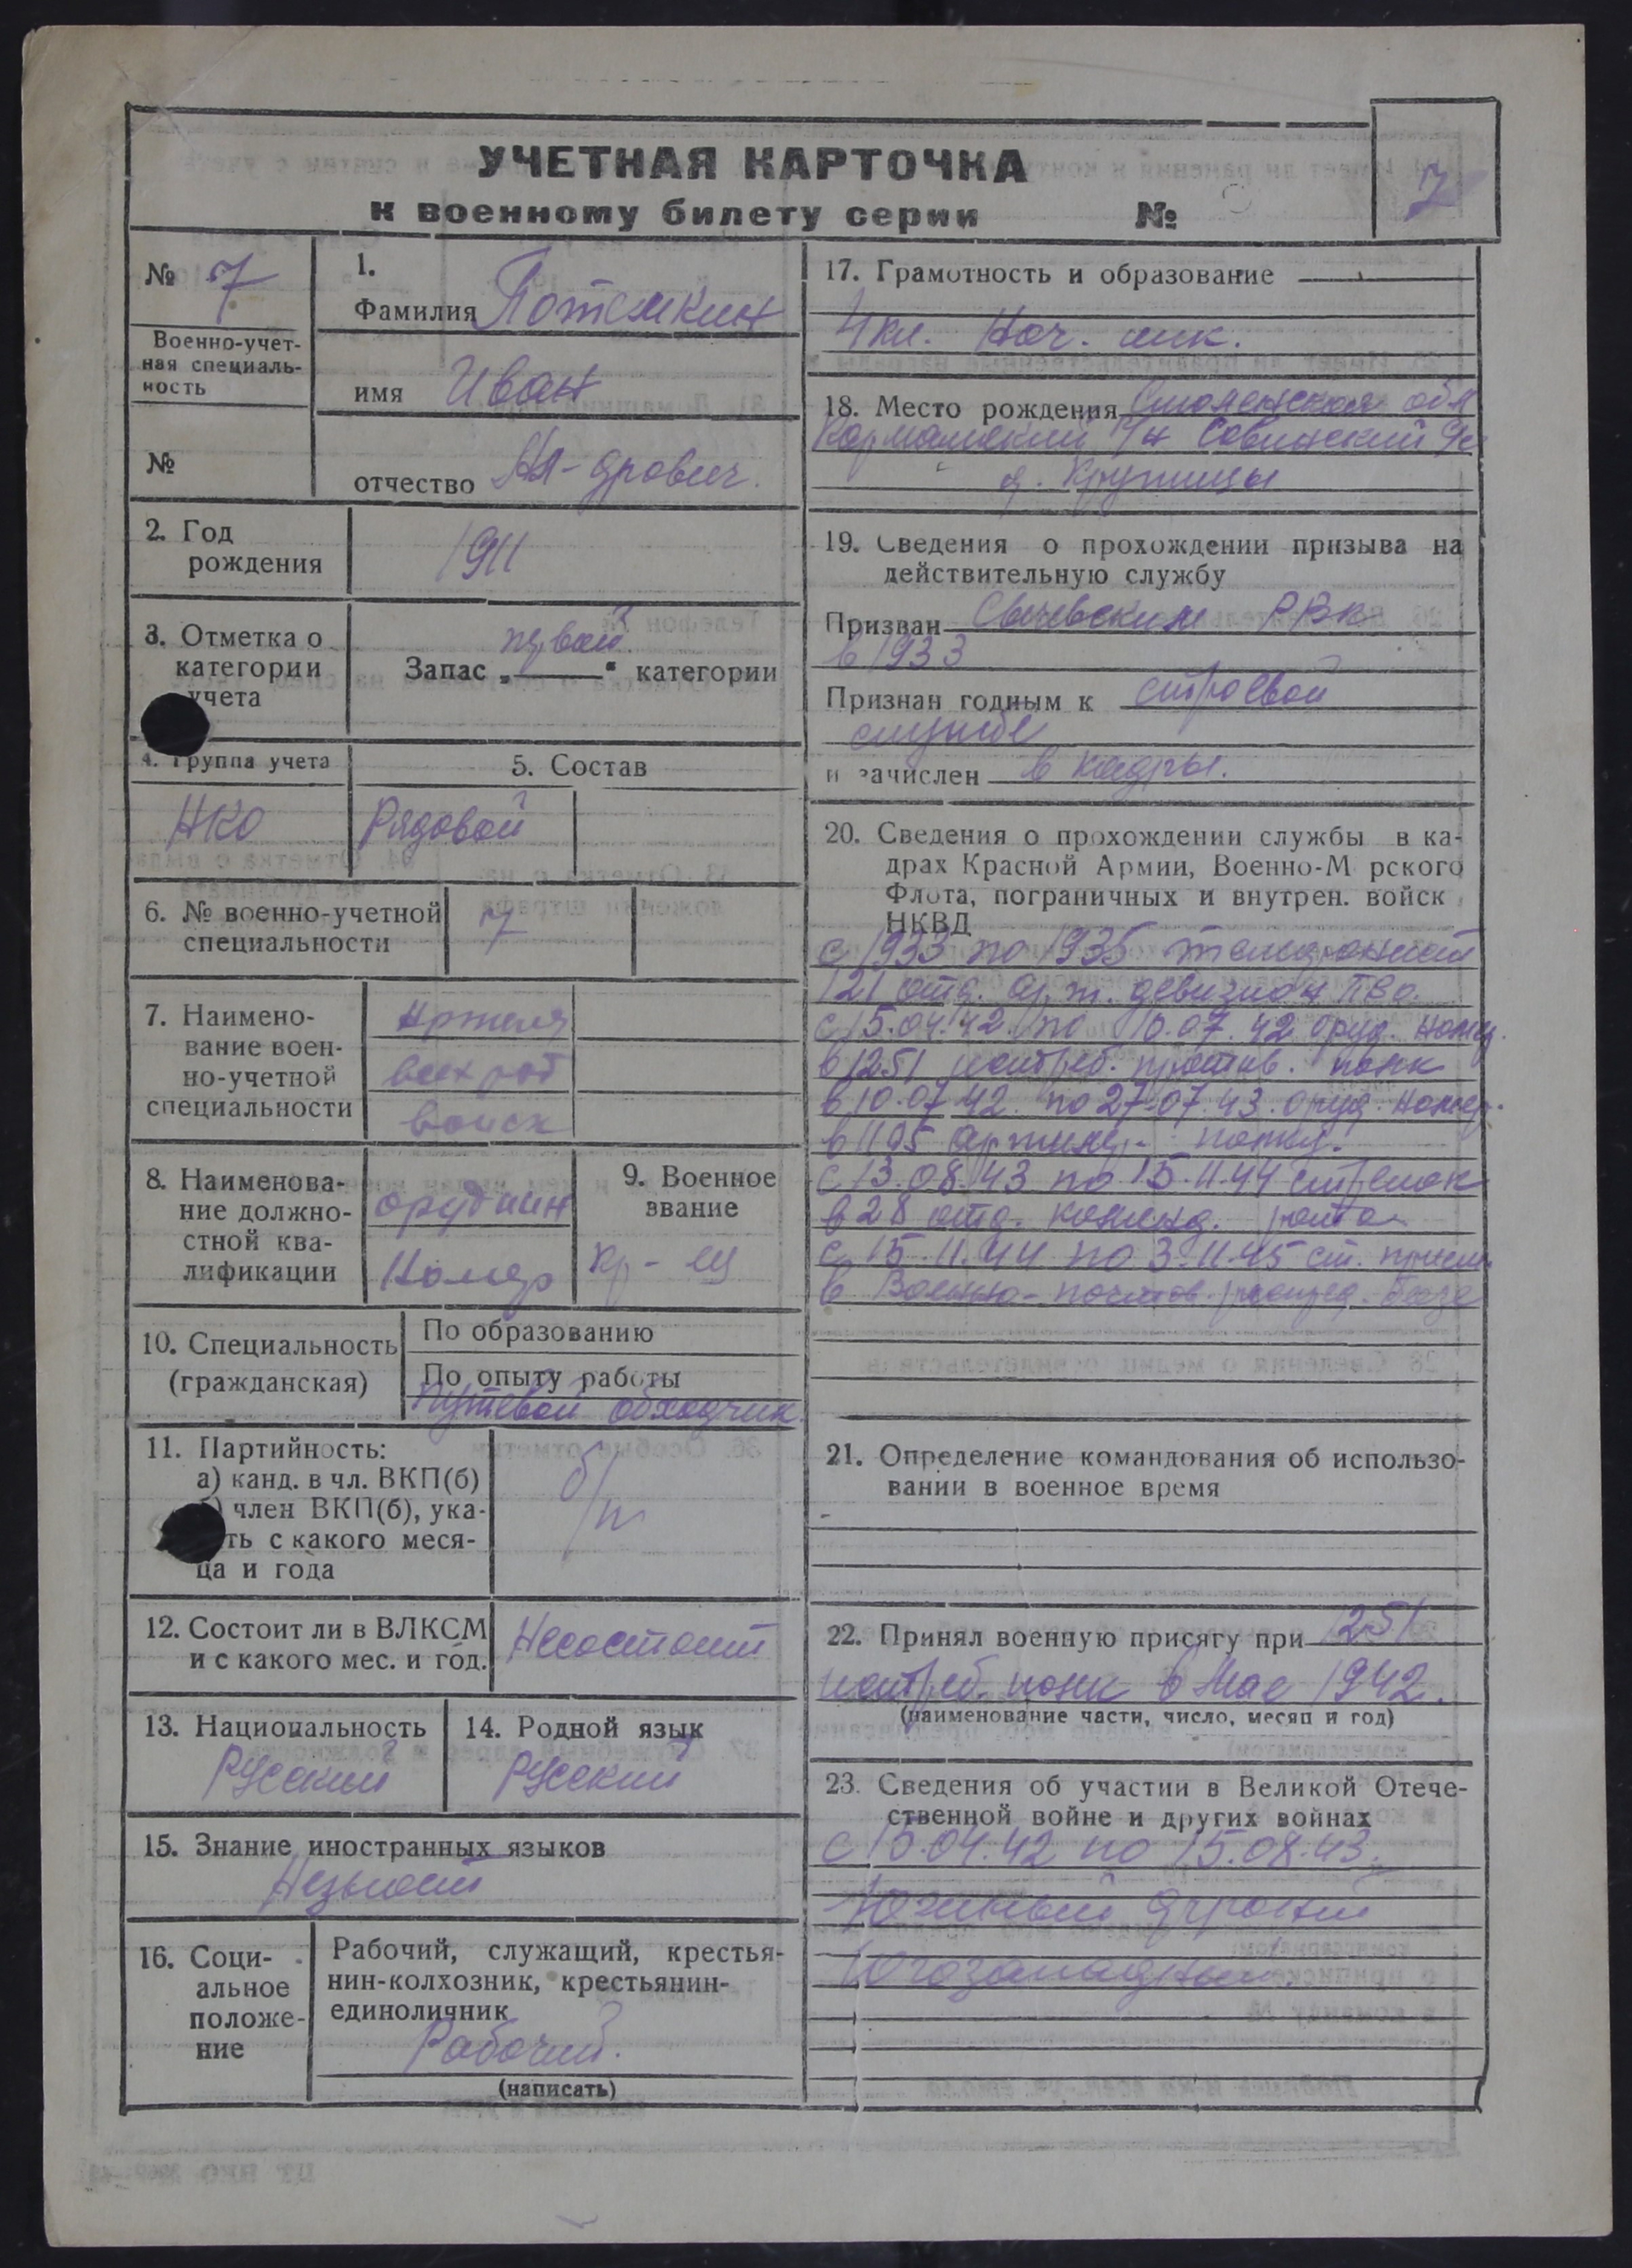 УЧЕТНАЯ КАРТОЧКА
к военному билету серии №
7
№ 7
Военно-учет-
ная специаль-
ность
№
1.
Фамилия Потемкин
имя Иван
отчество Ал-дрович.
2. Год
рождения
1911
3. Отметка о
категории
учета
Запас „первой“ категории
4. Группа учета
НКО
5. Состав
Рядовой
6. № военно-учетной
специальности
7
7. Наимено-
вание воен-
но-учетной
специальности
всех род
войск
8. Наименова-
ние должно-
стной ква-
лификации
орудийн
Номер
9. Военное
звание
кр-ец
10. Специальность
(гражданская)
По образованию
По опыту работы
Путевой обходчик.
11. Партийность:
а) канд. в чл. ВКП(б)
член ВКП(б), ука-
ть с какого меся-
ца и года
б/п
12. Состоит ли в ВЛКСМ
и с какого мес. и год.
Несостоит
13. Национальность
Русский
14. Родной язык
Русский
15. Знание иностранных языков
16. Соци-
альное
положе-
ние
Рабочий, служащий, крестья-
нин-колхозник, крестьянин-
единоличник
Рабочий.
(написать)
17. Грамотность и образование
4 кл. Нач. шк.
18. Место рождения Смоленская обл
р/н Савинский с/с
д. Крутицы
19. Сведения о прохождении призыва на
действительную службу
Призван Сычевским РВК
в 1933
Признан годным к строевой
службе
и зачислен в кадры.
20. Сведения о прохождении службы в ка-
драх Красной Армии, Военно-М рского
Флота, пограничных и внутрен. войск
НКВД
с 1933 по 1935 телефонист
121 отд. арт. дивизион ПВО.
с 15.04.42. по 10.07.42 оруд. номер.
в 1251 истреб. против. полк
в 10.07.42. по 27.07.43. оруд. номер.
в 1195 артилер. полку.
с 13.08.43 по 15.11.44 стрелок
в 28 отд. команд. рота
с 15.11.44 по 3.11.45 ст.
в Военно-почтов. распред. базе
21. Определение командования об использо-
вании в военное время
22. Принял военную присягу при 1251
истреб. полк в Мае 1942.
(наименование части, число, месяц и год)
23. Сведения об участии в Великой Отече-
ственной войне и других войнах
с 15.04.42 по 15.08.43.
Южный фронт
Югозападный.